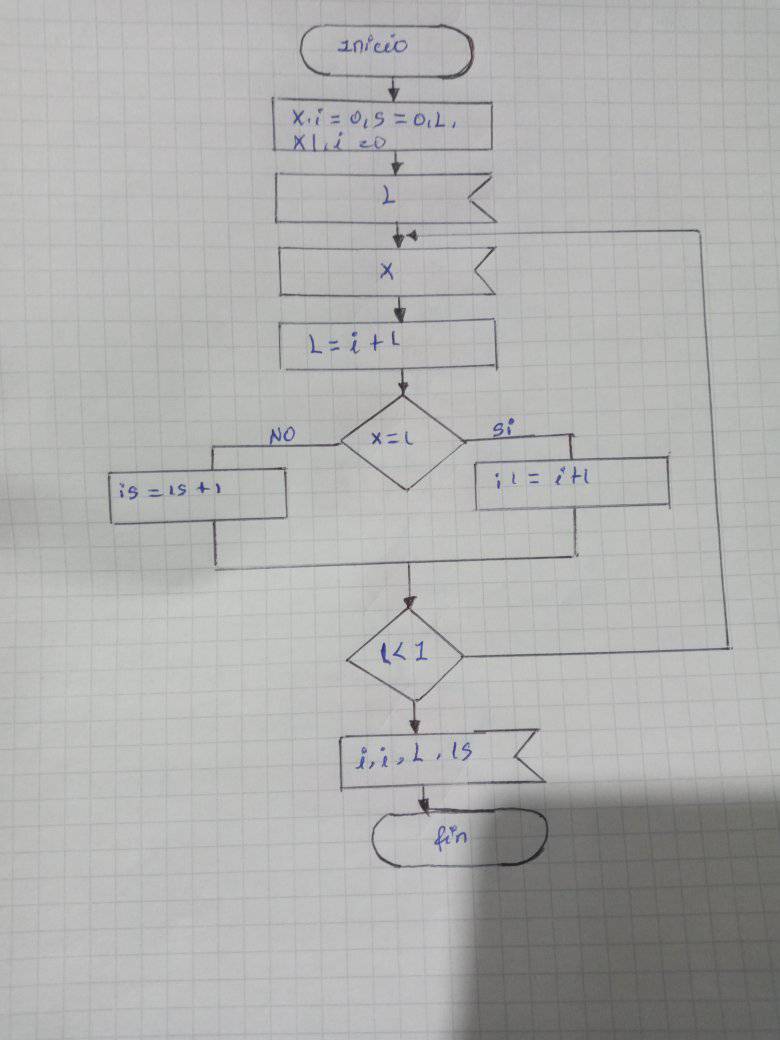 Inicio
x, i = 0, s = 0, L,
x1, i = 0
L
x
L = i + L
x = L
NO
si
is = is + 1
i1 = i+1
L < 1
i, i, L, is
fin